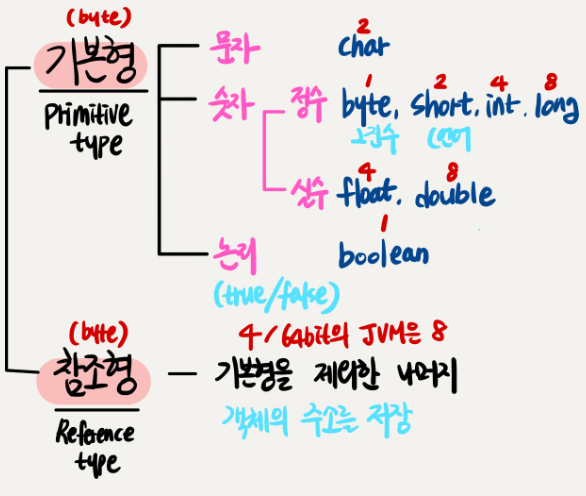 (byte)
기본형
Primitive
type
문자 char 2
숫자 정수 byte, short, int, long 1 2 4 8
2진수 C언어
실수 float, double 4 8
논리 boolean 1
(true/false)
(byte)
참조형
Reference
type
4/64bit의 JVM은 8
기본형을 제외한 나머지
객체의 주소를 저장